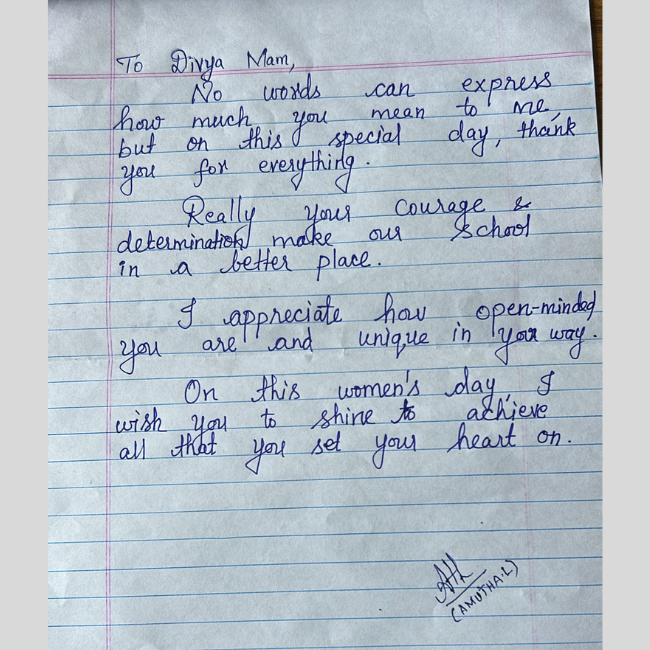 To Divya Mam,
No words can express
how much you mean to me,
but on this special day, thank
you for everything.
Really your courage &
determination make our school
in a better place.
I appreciate how open-minded
you are and unique in your way.
On this women's day, I
wish you to shine to achieve
all that you set your heart on.
(AMUTHA.L)